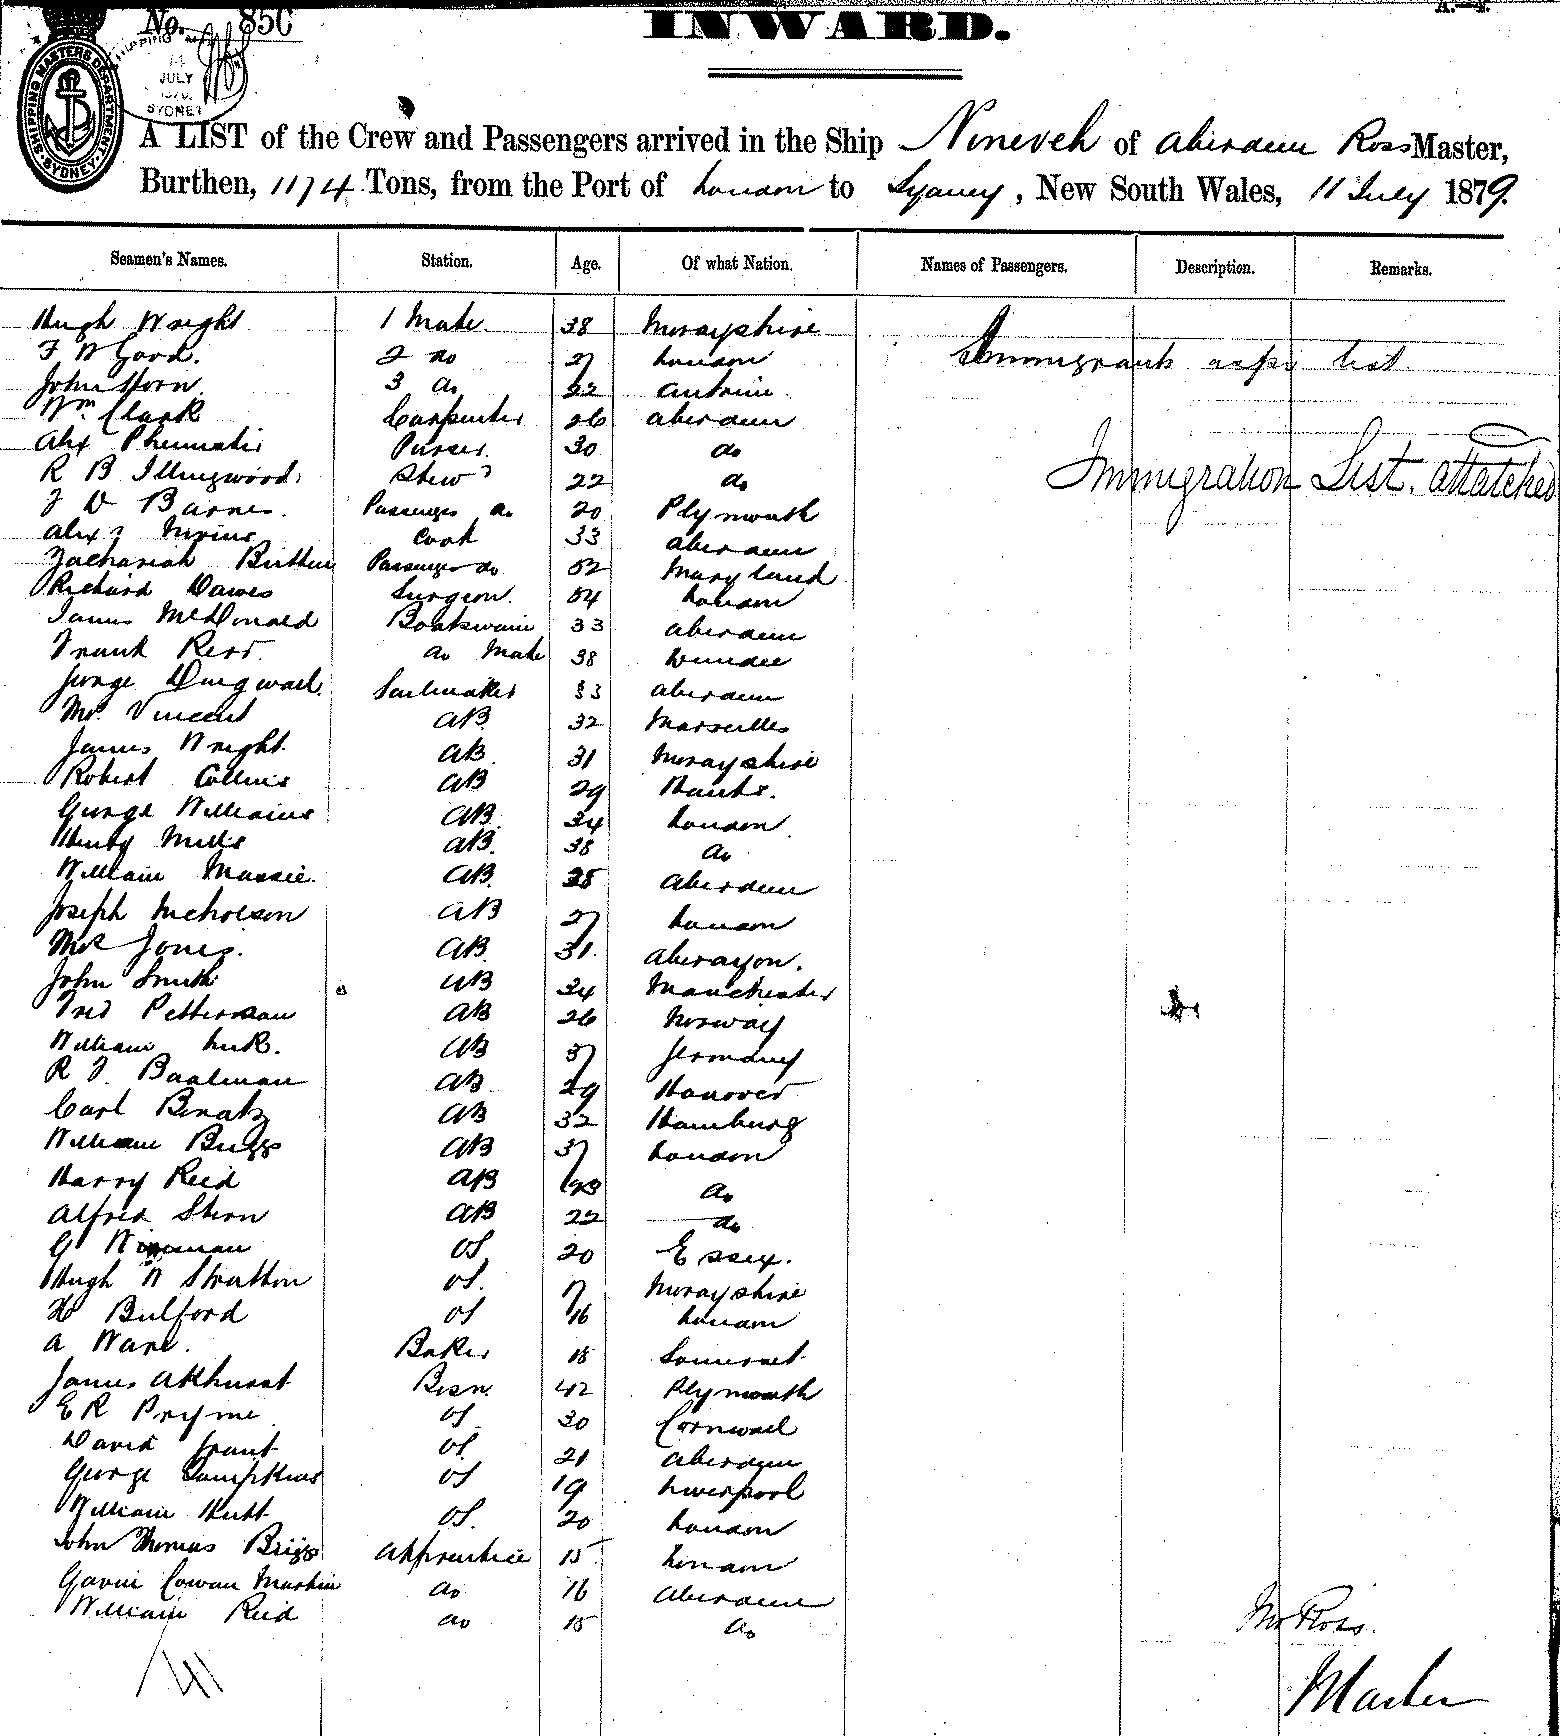 No. 850
INWARD.
SHIPPING MASTERS DEPARTMENT SYDNEY
JULY
SYDNEY
A LIST of the Crew and Passengers arrived in the Ship Nineveh of Aberdeen Ross Master,
Burthen, 1174 Tons, from the Port of London to Sydney, New South Wales, 11 July 1879.
Seamen's Names. Station. Age. Of what Nation. Names of Passengers. Description. Remarks.
Hugh Wright 1 Mate 38 Morayshire
F W Good. 2 do 27 London Immigrants as per list
John Horn 3 do 22 Antrim
Wm Clark Carpenter 26 Aberdeen
Alex Purser. 30 do
R B Illingwood Stewd 22 do Immigration List attatched
F D Barnes. Passengers do 20 Plymouth
Alexr Cook 33 Aberdeen
Zachariah Passenger do 52 Maryland
Richard Dawes Surgeon. 54 London
James McDonald Boatswain 33 Aberdeen
Frank Reid do Mate 38 Dundee
George Dingwall Sailmaker 33 Aberdeen
Vincent AB 32 Marseilles
James Wright AB 31 Morayshire
Robert Collins AB 29 Hants.
George Williams AB 34 London
Henry Mills AB 38 do
William Massie AB 28 Aberdeen
Joseph Nicholson AB 27 London
Jones. AB 31 Aberayon.
John Smith AB 24 Manchester
Fred Petterson AB 26 Norway
William AB 37 Germany
R F. Baalman AB 29 Hanover
Carl Benatz AB 32 Hamburg
William Briggs AB 37 London
Harry Reid AB 23 do
Alfred Stern AB 22 do
G OS 20 Essex.
Hugh W Stratton OS. 17 Morayshire
H Bulford OS 16 London
A Ware. Baker 18 Somerset
James Akhurst Bosn 42 Plymouth
E R Pryme OS 30 Cornwall
David Grant OS 21 Aberdeen
George Tompkins OS 19 Liverpool
William Hutt OS. 20 London
John Thomas Briggs Apprentice 15 London
Gavin Cowan Martin do 16 Aberdeen
William Reid do 15 do
Ross.
Master